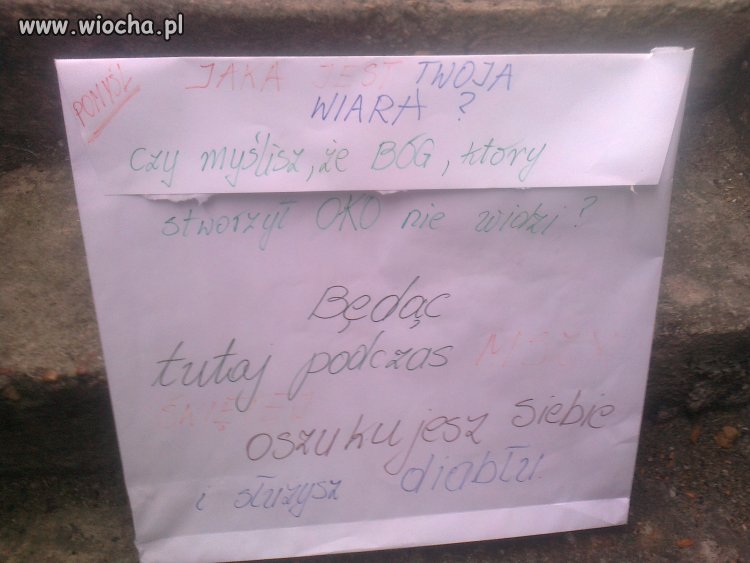 www.wiocha.pl
POMYŚL
JAKA JEST TWOJA
WIARA?
Czy myślisz, że BÓG, który
stworzył OKO nie widzi?
Będąc
tutaj podczas MSZY
ŚWIĘTEJ
oszukujesz siebie
i służysz diabłu